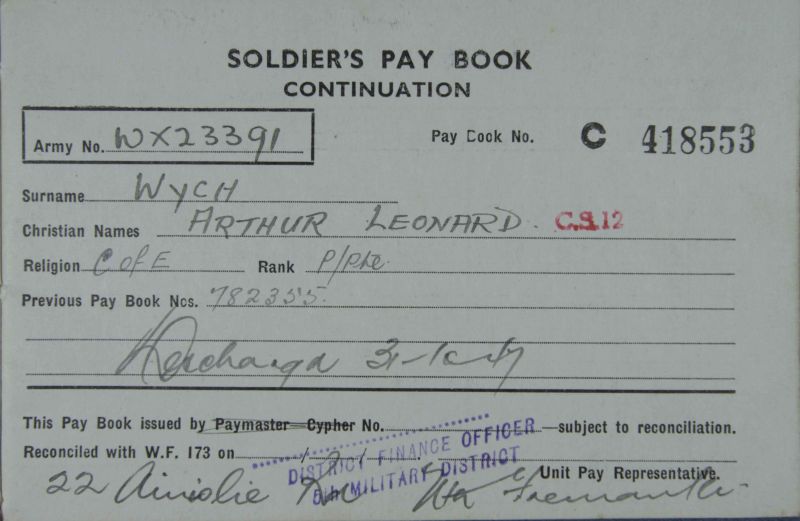 SOLDIER'S PAY BOOK
CONTINUATION
Army No. WX23391 Pay Book No. C 418553
Surname WYCH
Christian Names ARTHUR LEONARD. C.S.12
Religion C of E Rank P/Pte
Previous Pay Book Nos. 782355.
Discharged
This Pay Book issued by Paymaster—Cypher No. —subject to reconciliation.
Reconciled with W.F. 173 on
DISTRICT FINANCE OFFICER
5th MILITARY DISTRICT
Unit Pay Representative.
22 Ainslie Rd Nth Fremantle.